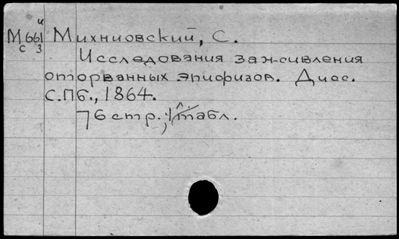 M661 и Михниовский, С.
с 3
Исследования заживления
оторванных эпифизов. Дисс.
С.Пб., 1864.
76 стр., 1 табл.